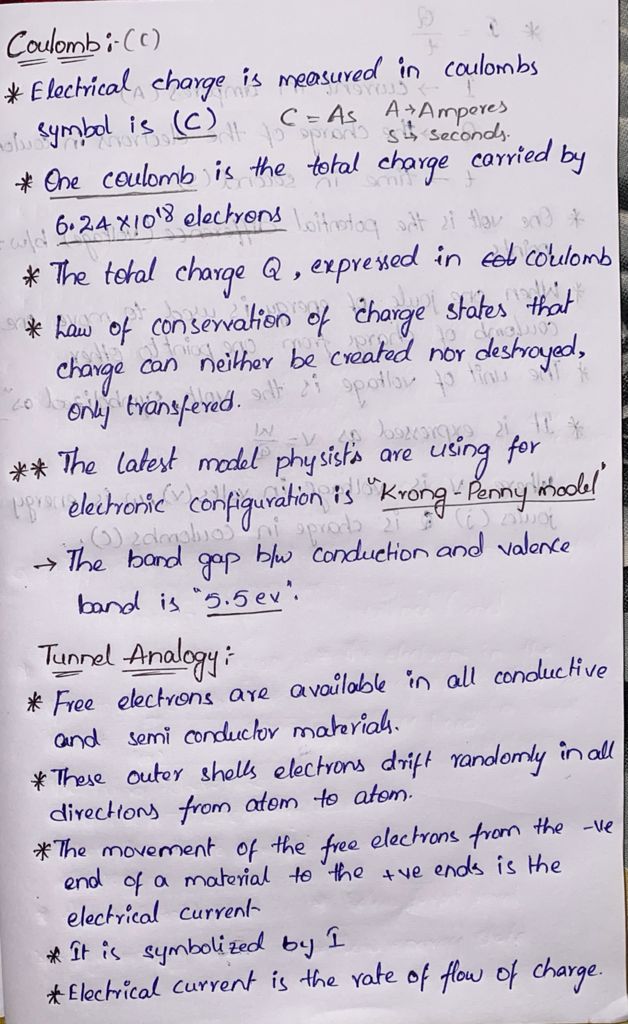 Coulomb :- (C)
* Electrical charge is measured in coulombs
symbol is (C) C = As A → Amperes
s → seconds.
* One coulomb is the total charge carried by
6.24 × 10^18 electrons
* The total charge Q, expressed in coulomb
* Law of conservation of charge states that
charge can neither be created nor destroyed,
only transfered.
** The latest model physists are using for
electronic configuration is "Krong-Penny model"
→ The band gap b/w conduction and valence
band is "5.5 ev".
Tunnel Analogy :-
* Free electrons are available in all conductive
and semi conductor materials.
* These outer shells electrons drift randomly in all
directions from atom to atom.
* The movement of the free electrons from the -ve
end of a material to the +ve ends is the
electrical current
* It is symbolized by I
* Electrical current is the rate of flow of charge.